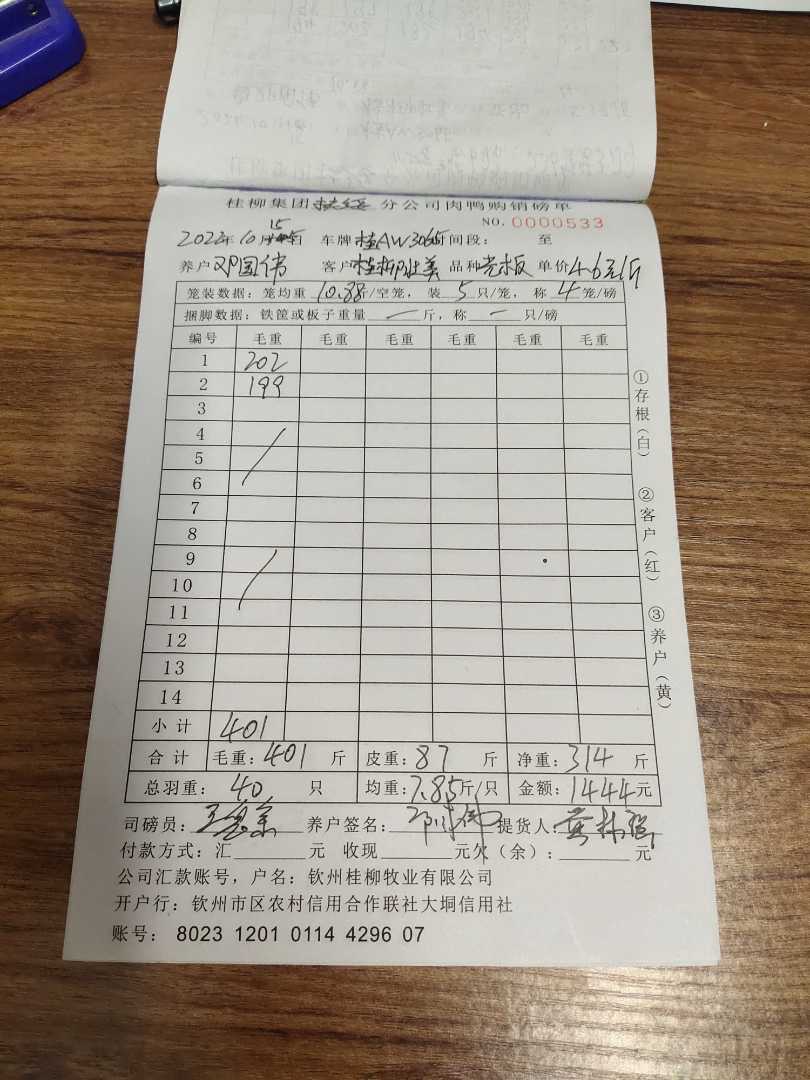 桂柳集团扶绥分公司肉鸭购销磅单
NO. 0000533
2022年10月15日 车牌桂AW3065时间段： 至
养户邓国伟 客户桂柳壮美 品种光板 单价4.6元/斤
笼装数据：笼均重10.88斤/空笼，装5只/笼，称4笼/磅
捆脚数据：铁筐或板子重量一斤，称一只/磅
编号 毛重 毛重 毛重 毛重 毛重 毛重
1 202
2 199
3
4
5
6
7
8
9
10
11
12
13
14
小计 401
合计 毛重：401斤 皮重：87斤 净重：314斤
总羽重：40只 均重：7.85斤/只 金额：1444元
司磅员： 养户签名： 提货人：
付款方式：汇 元 收现 元欠（余）： 元
公司汇款账号，户名：钦州桂柳牧业有限公司
开户行：钦州市区农村信用合作联社大垌信用社
账号：8023 1201 0114 4296 07
①存根（白）
②客户（红）
③养户（黄）